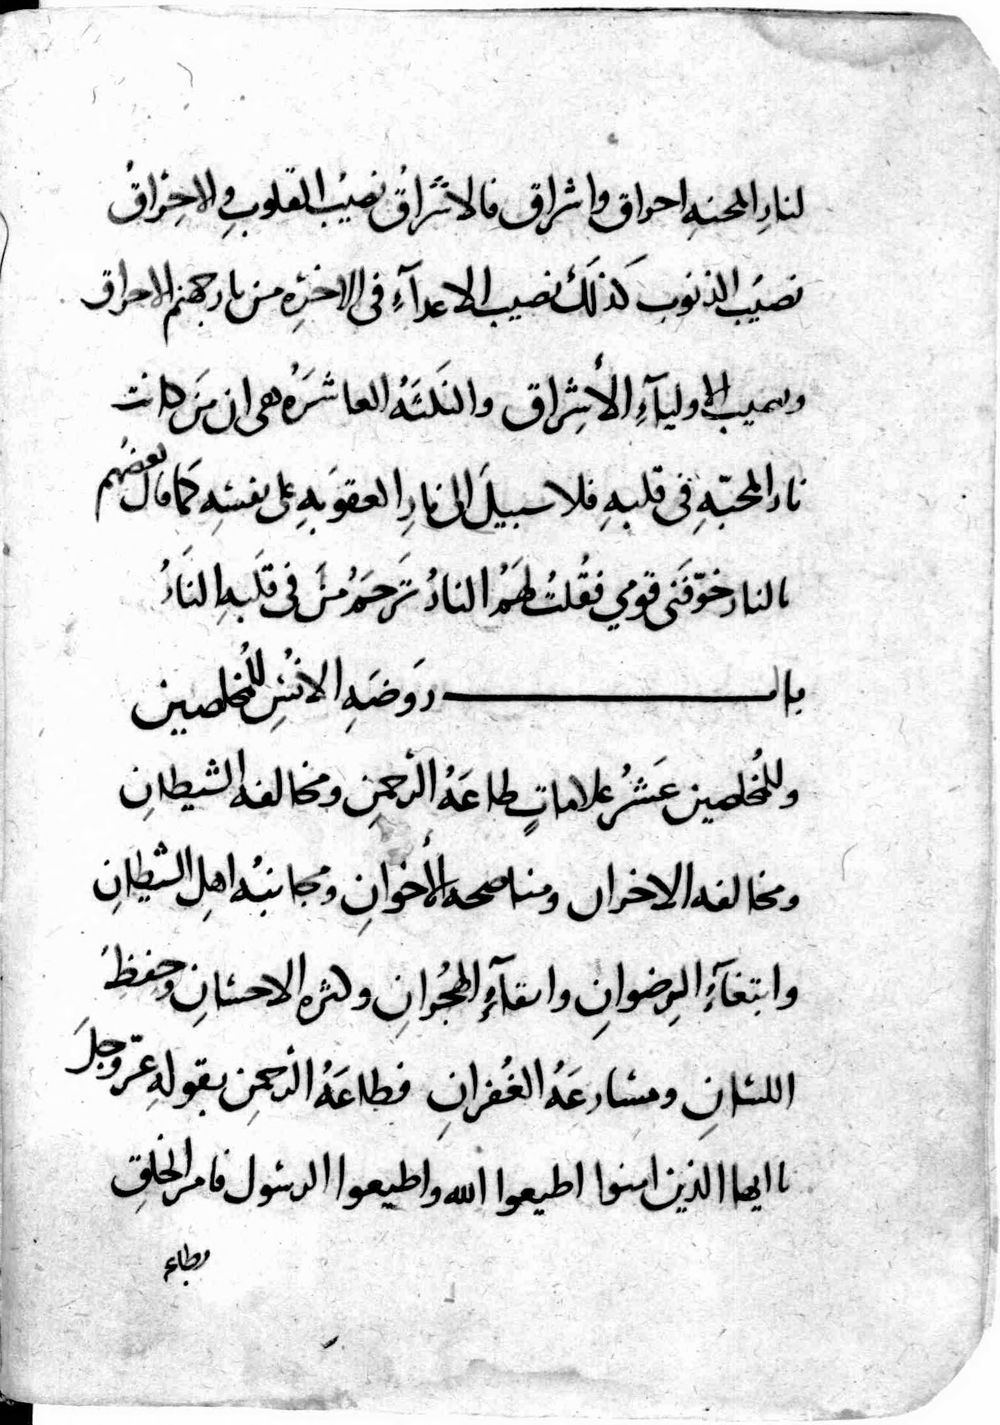 لنارِ المحبهِ احراق واشراق فالاشراقُ نصيبُ القلوبِ والاحِتراقُ
نصيَب الذنوب كذلَك نصيب الاعدآءِ فى الاخِرهِ من نار جهنم الاحراق
ونصيب الاوليآءِ الأشِراق والنَكتَهُ العاشَرهُ هى ان مَن كانت
نار المحبّهِ فى قلبهِ فلا سبيلَ الى نارِ العقوبَهِ على نفسِهِ كما قال بعضهم
بالنار خوّفَنى قومي فقُلتُ لهَمُ النارُ تَرحَمُ منَ فى قلَبهِ النَارُ
باب رَوضَهِ الانُسِ للمُخلصين
وللمُخلصين عَشرُ علاماتٍ طاعَهُ الرحمنِ ومخالفه الشيطانِ
ومخالفه الاخران ومناصحه الأخوانِ ومجانبهُ اهلِ الشيطانِ
وابتغآءِ الرِضوانِ واتقآءِ الهجُرانِ وكثره الاحسانِ وحِفظِ
اللسانِ ومسارعَهُ الغُفرانِ فطاعَهُ الرحمنِ بقولهِ عزّ وجلَ
يا ايها الذين امنوا اطيعوا الله واطيعوا الرسُول فامر الخلقِ
بطاعه